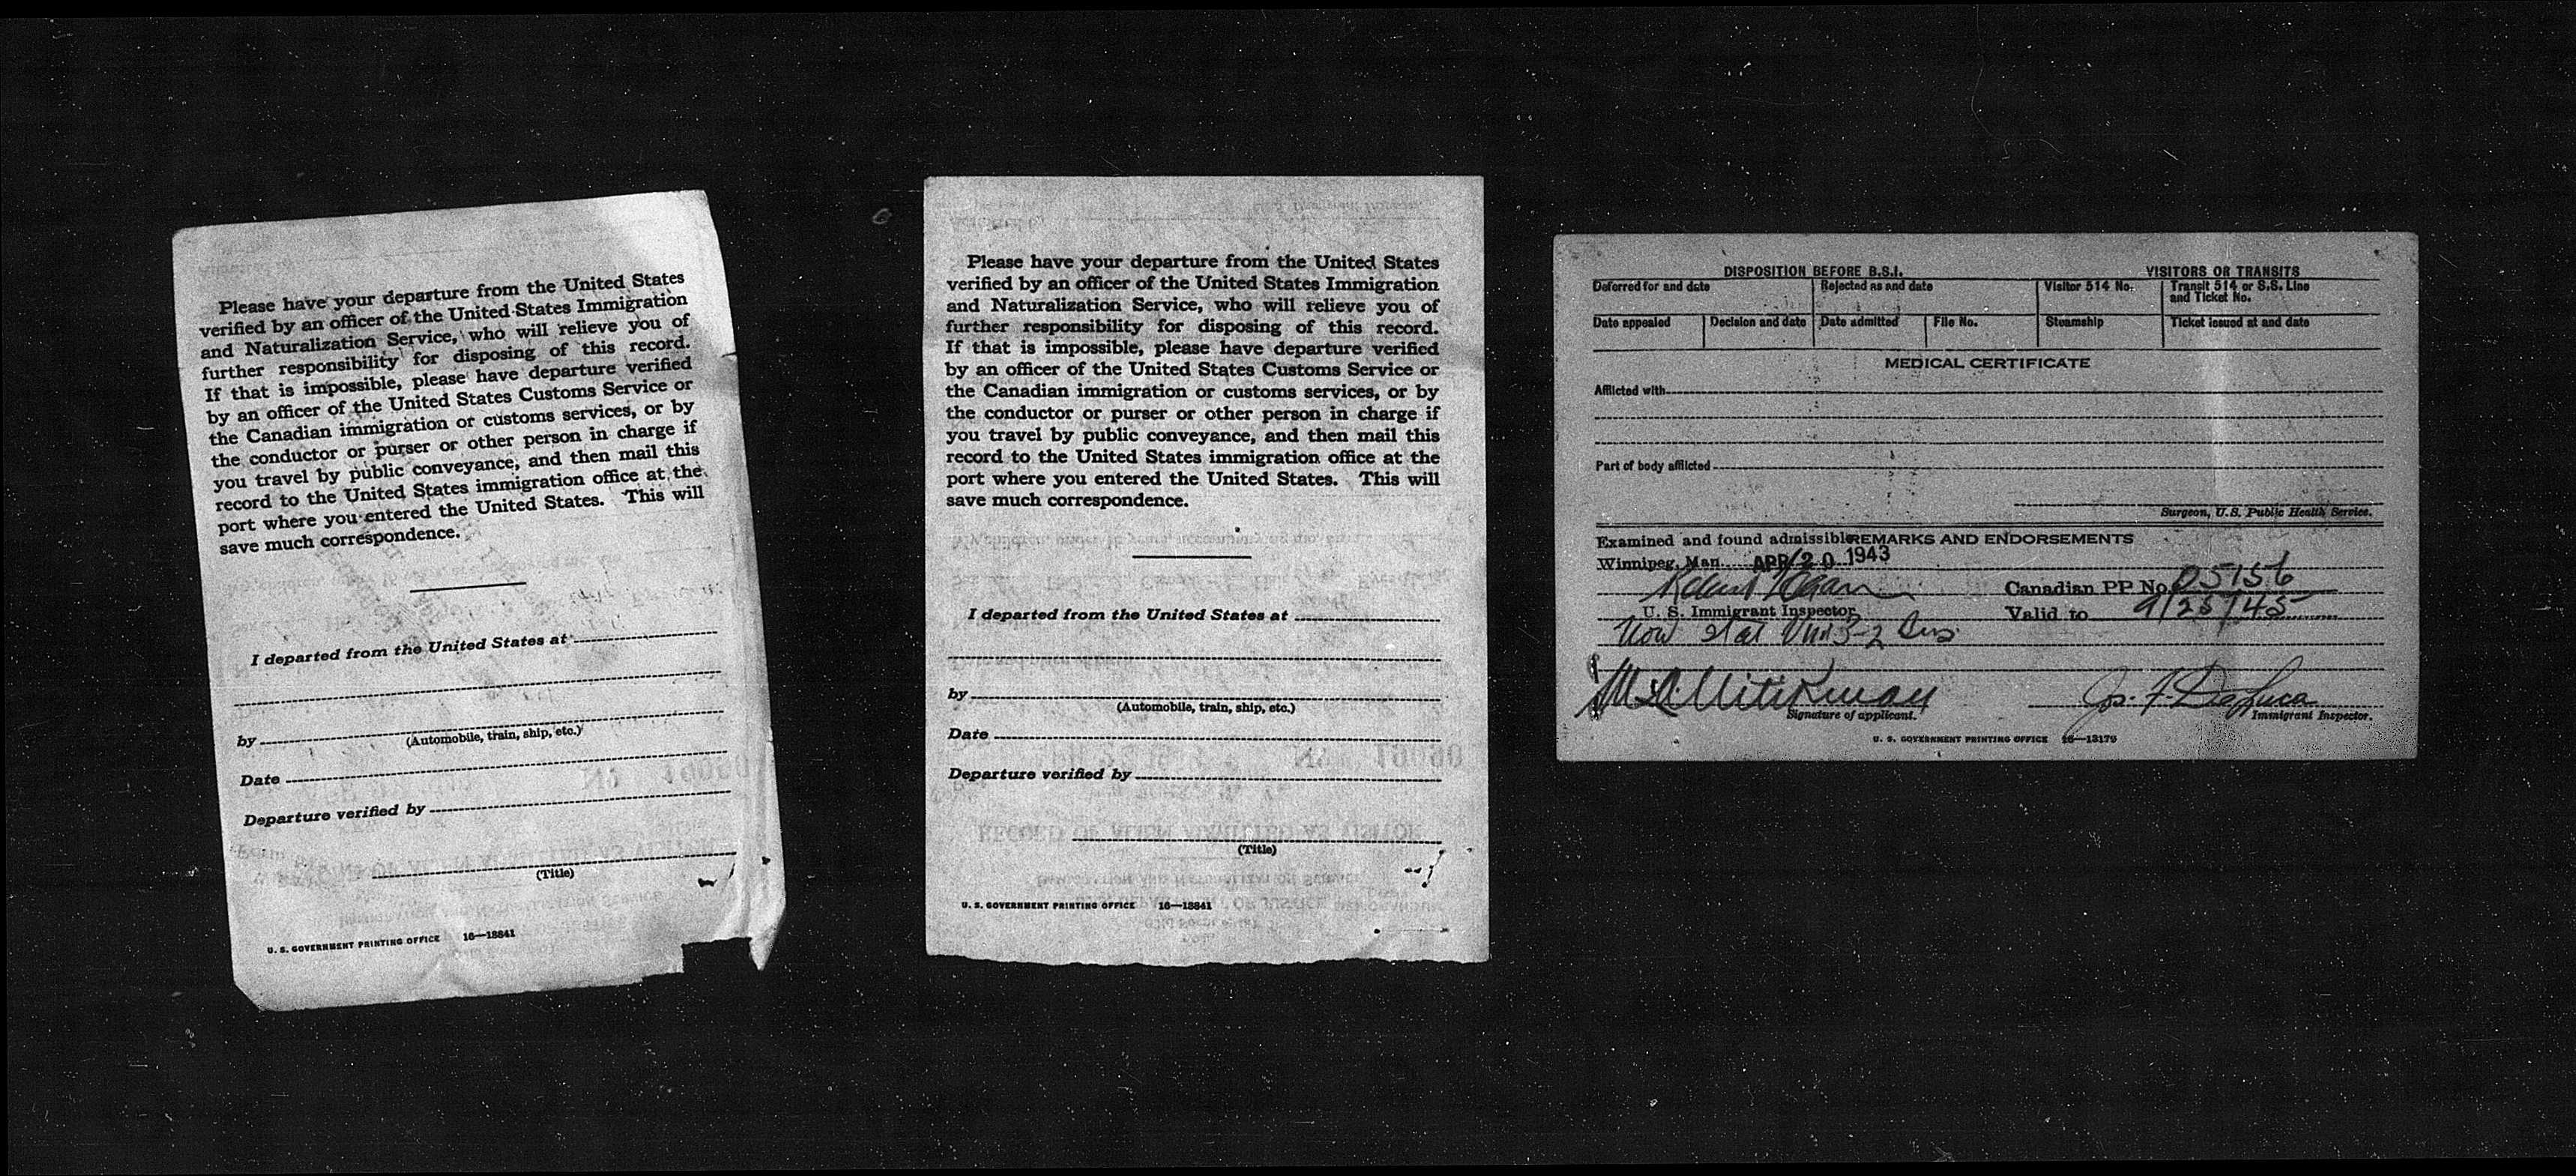 Please have your departure from the United States
verified by an officer of the United States Immigration
and Naturalization Service, who will relieve you of
further responsibility for disposing of this record.
If that is impossible, please have departure verified
by an officer of the United States Customs Service or
the Canadian immigration or customs services, or by
the conductor or purser or other person in charge if
you travel by public conveyance, and then mail this
record to the United States immigration office at the
port where you entered the United States. This will
save much correspondence.
I departed from the United States at
by
(Automobile, train, ship, etc.)
Date
Departure verified by
(Title)
U. S. GOVERNMENT PRINTING OFFICE 16—18841
Please have your departure from the United States
verified by an officer of the United States Immigration
and Naturalization Service, who will relieve you of
further responsibility for disposing of this record.
If that is impossible, please have departure verified
by an officer of the United States Customs Service or
the Canadian immigration or customs services, or by
the conductor or purser or other person in charge if
you travel by public conveyance, and then mail this
record to the United States immigration office at the
port where you entered the United States. This will
save much correspondence.
I departed from the United States at
by
(Automobile, train, ship, etc.)
Date
Departure verified by
(Title)
U. S. GOVERNMENT PRINTING OFFICE 16—18841
DISPOSITION BEFORE B.S.I. VISITORS OR TRANSITS
Deferred for and date Rejected as and date Visitor 514 No. Transit 514 or S.S. Line and Ticket No.
Date appealed Decision and date Date admitted File No. Steamship Ticket issued at and date
MEDICAL CERTIFICATE
Afflicted with
Part of body afflicted
Surgeon, U.S. Public Health Service.
Examined and found admissible REMARKS AND ENDORSEMENTS
Winnipeg, Man. APR 20 1943
Canadian PP No. 05156
U. S. Immigrant Inspector
Valid to 9/25/45
Now stat
Signature of applicant.
Jos. F. DeLuca
Immigrant Inspector.
U. S. GOVERNMENT PRINTING OFFICE 16—13179